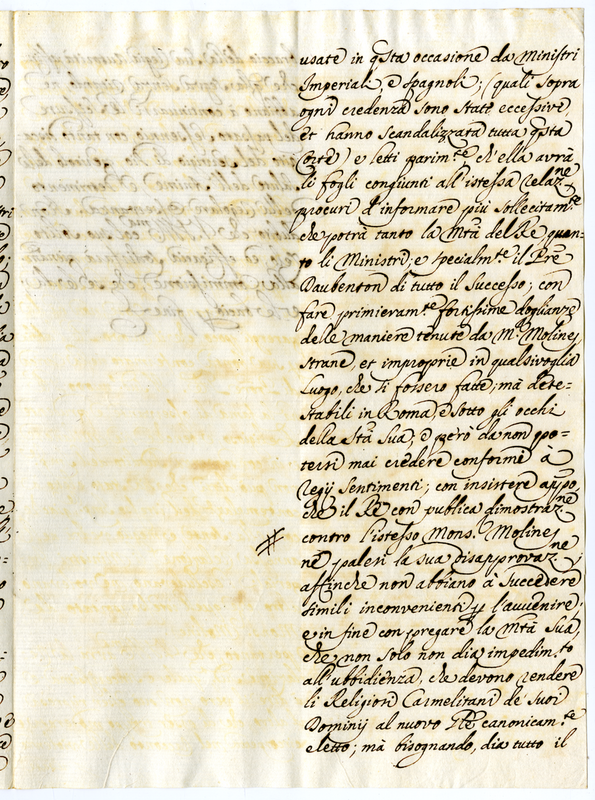 usate in qsta occasione da Ministri
Imperiali, e spagnoli; (quali sopra
ogni credenza sono state eccessive,
et hanno scandalizzata tutta qsta
Corte) e letti parim.te ch'ella avrà
li fogli congiunti all'istessa relaz.ne
procuri d'informare più sollecitam.te
che potrà tanto la Mtà del Re quan-
to li Ministri, e specialm.te il Pre
Daubenton di tutto il successo; con
fare primieram.te fortissime doglianze
delle maniere tenute da Mr. Molines
strane, et improprie in qualsivoglia
luogo, che si fossero fatte, mà dete=
stabili in Roma, e sotto gli occhi
della Stà Sua, e però da non po=
tersi mai credere conforme à
regij sentimenti; con insistere appo,
che il Re con publica dimostraz.ne
contro l'istesso Mons. Molines
ne palesi la sua disapprovaz.ne;
affinche non abbiano à succedere
simili inconvenienti p l'avvenire;
e in fine con pregare la Mtà Sua,
che non solo non dia impedim.to
all'ubbidienza, che devono rendere
li Religiosi Carmelitani de suoi
Dominij al nuovo Gle canonicam.te
eletto; mà bisognando, dia tutto il